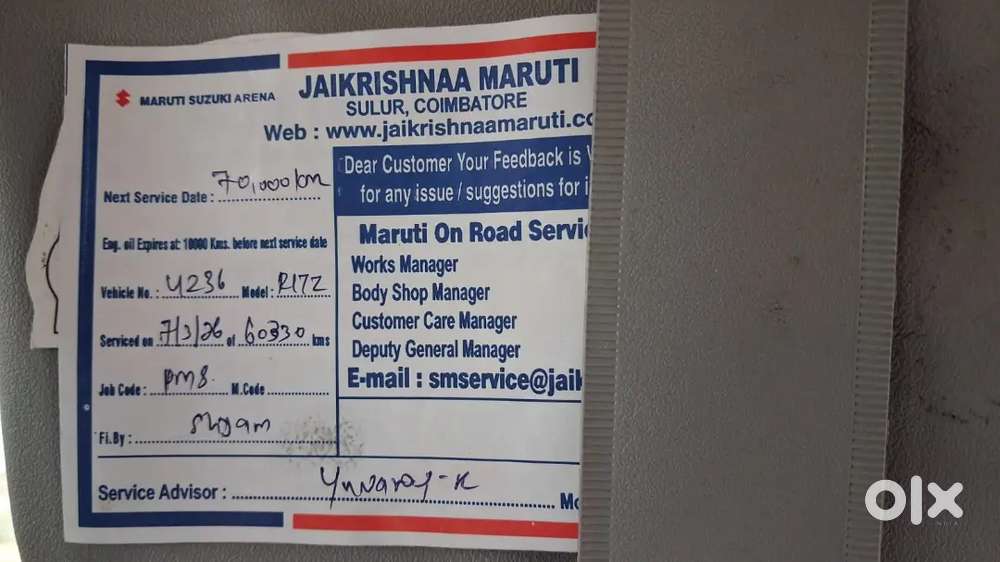 MARUTI SUZUKI ARENA
JAIKRISHNAA MARUTI
SULUR, COIMBATORE
Web : www.jaikrishnaamaruti.co
Next Service Date : 70,000 km
Eng. oil Expires at: 10000 Kms. before next service date
Vehicle No. : 4236 Model : RITZ
Serviced on 7/3/26 of 60330 kms
Job Code : PMS M.Code
Fi.By : Shyam
Dear Customer Your Feedback is
for any issue / suggestions for i
Maruti On Road Servic
Works Manager
Body Shop Manager
Customer Care Manager
Deputy General Manager
E-mail : smservice@jaik
Service Advisor : Yuvaraj-K
Mo
olx
INDIA